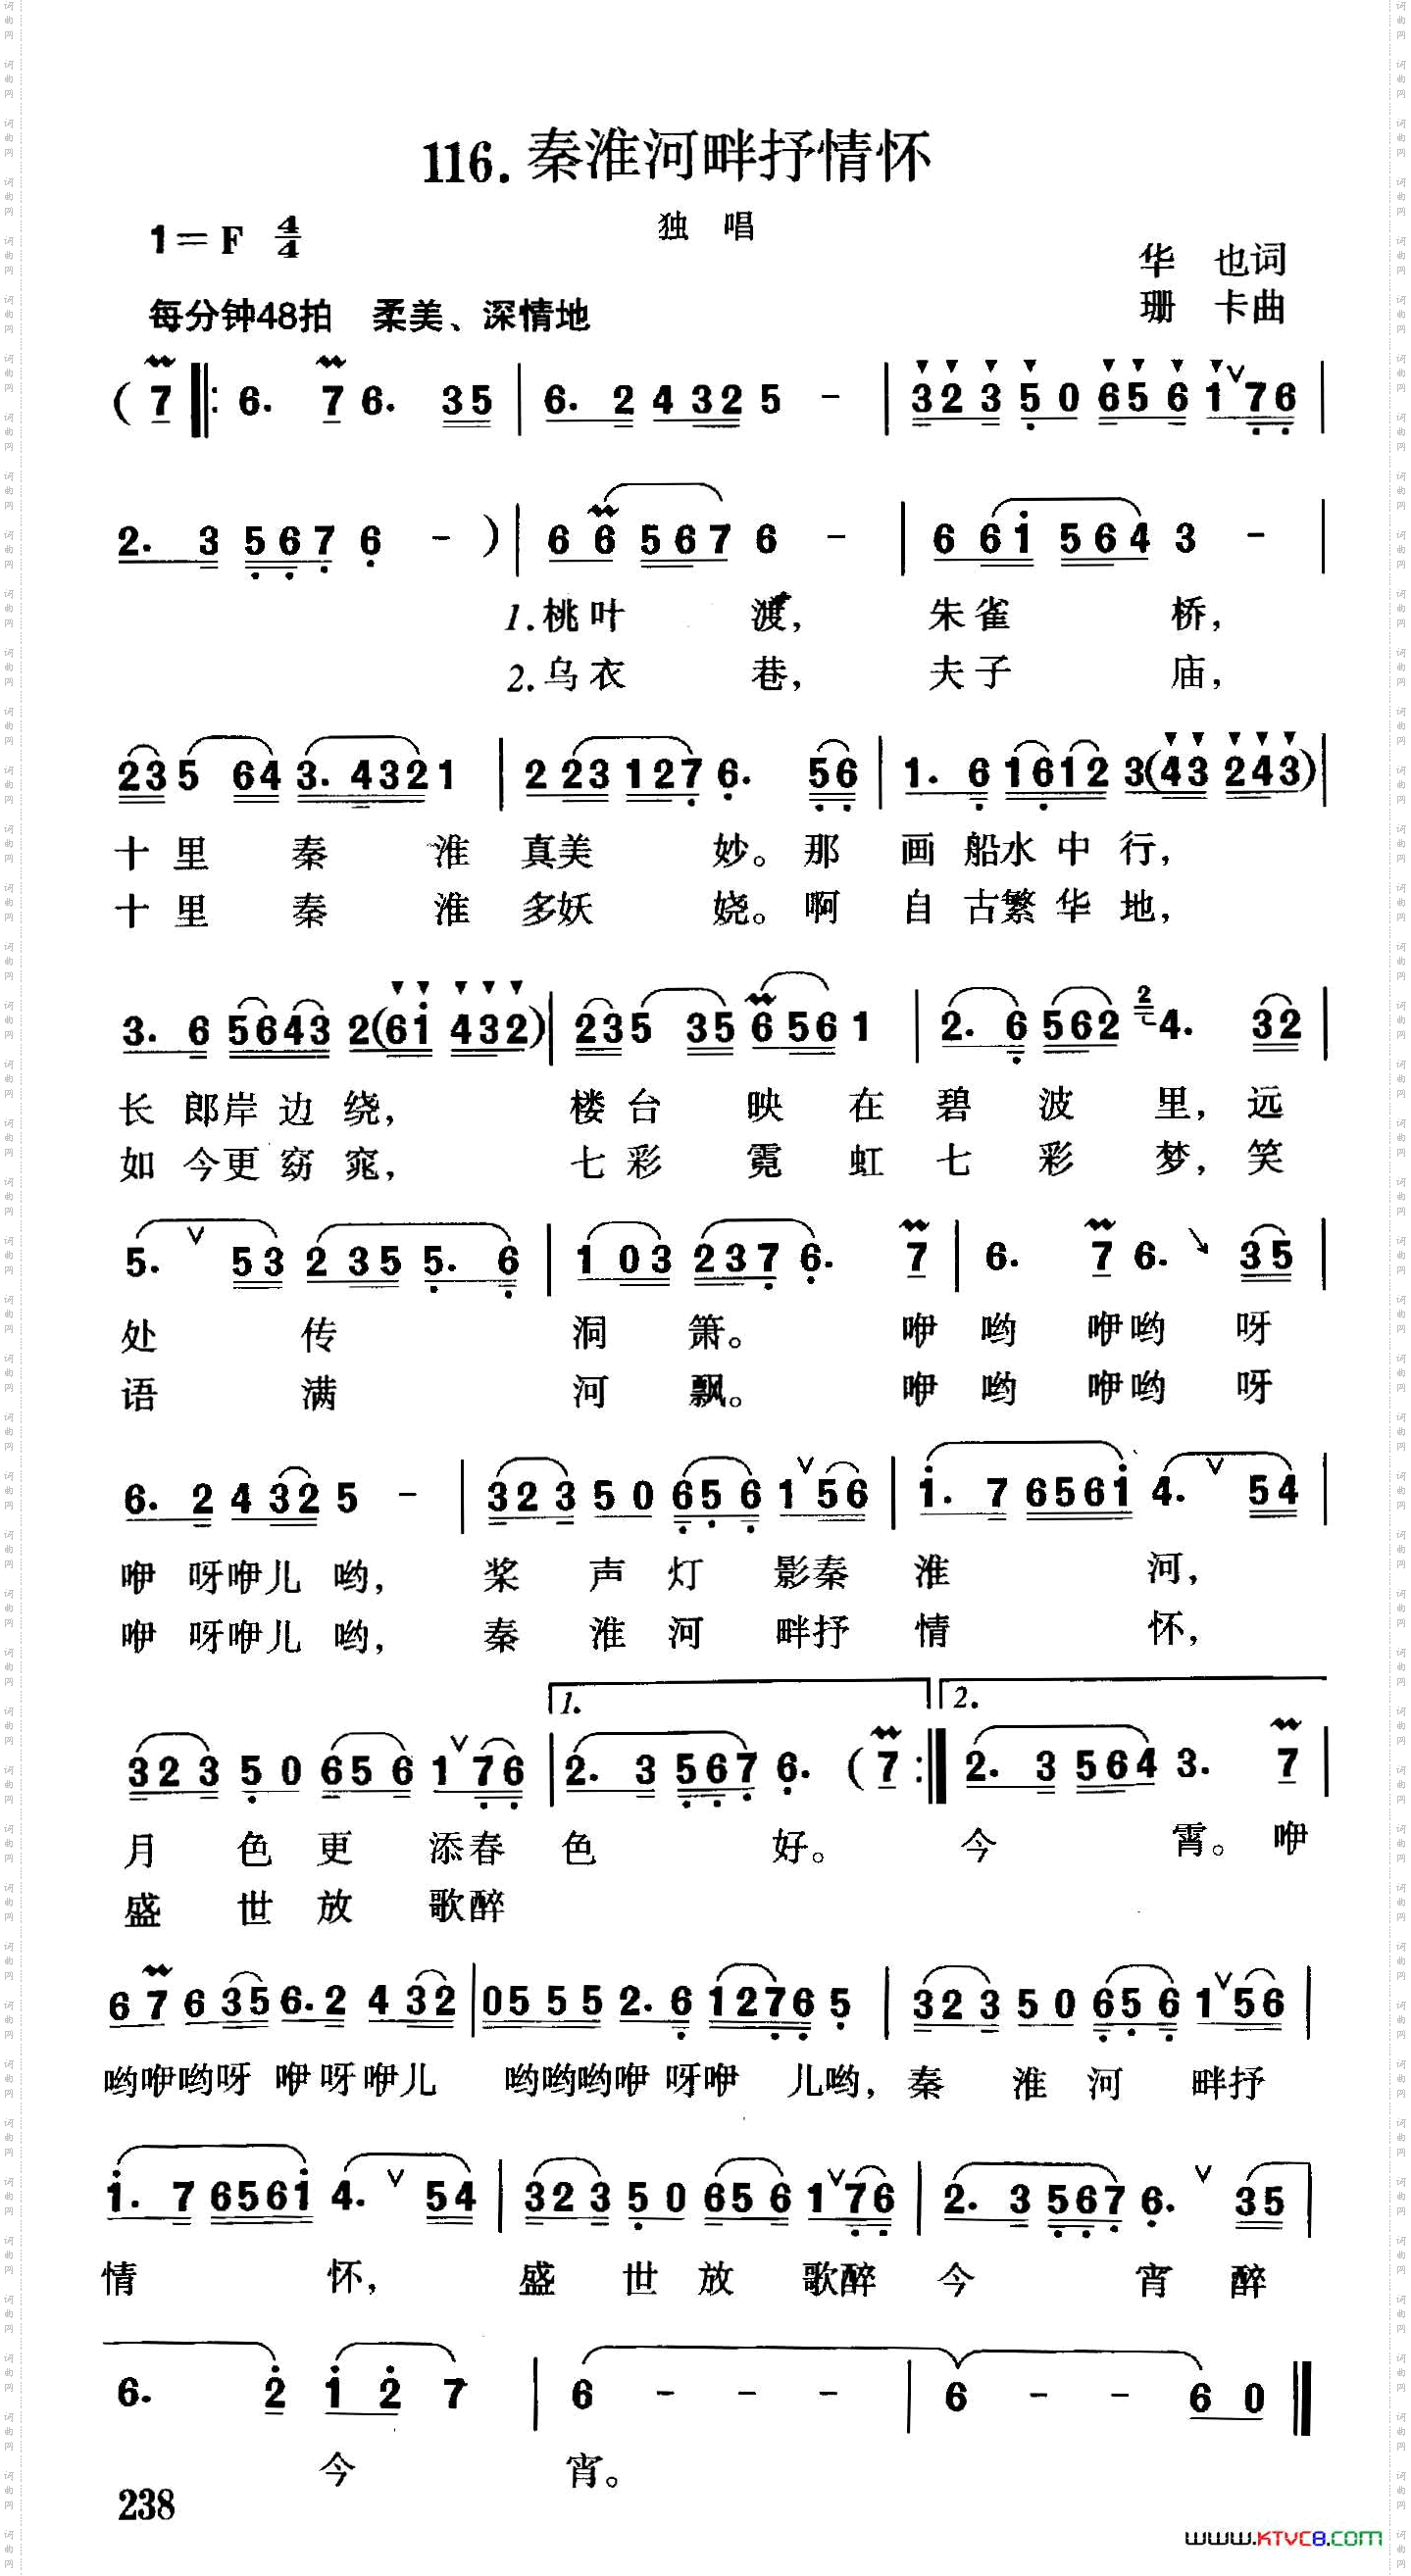 116. 秦淮河畔抒情怀
独 唱
1=F 4/4
华 也词
每分钟48拍 柔美、深情地
珊 卡曲
( 7 ‖: 6. 7 6. 35 | 6. 2 4 32 5 - | 3 2 3 5 0 6 5 6 1 7 6 |
2. 3 5 6 7 6 - ) | 6 6 5 6 7 6 - | 6 6 i 5 6 4 3 - |
1.桃叶 渡, 朱雀 桥,
2.乌衣 巷, 夫子 庙,
2 3 5 6 4 3. 4 3 2 1 | 2 2 3 1 2 7 6. 5 6 | 1. 6 1 6 1 2 3 ( 4 3 2 4 3 ) |
十里 秦 淮 真美 妙。那 画 船水中行,
十里 秦 淮 多妖 娆。啊 自 古繁华地,
3. 6 5 6 4 3 2 ( 6 i 4 3 2 ) | 2 3 5 3 5 6 5 6 1 | 2. 6 5 6 2 2 4. 3 2 |
长 郎岸边绕, 楼台 映 在 碧 波 里, 远
如 今更窈窕, 七彩 霓 虹 七 彩 梦, 笑
5. 5 3 2 3 5 5. 6 | 1 0 3 2 3 7 6. 7 | 6. 7 6. 3 5 |
处 传 洞 箫。 咿 哟 咿哟 呀
语 满 河 飘。 咿 哟 咿哟 呀
6. 2 4 3 2 5 - | 3 2 3 5 0 6 5 6 1 5 6 | i. 7 6 5 6 i 4. 5 4 |
咿 呀咿儿 哟, 桨 声 灯 影秦 淮 河,
咿 呀咿儿 哟, 秦 淮 河 畔抒 情 怀,
1. 2.
3 2 3 5 0 6 5 6 1 7 6 | 2. 3 5 6 7 6. ( 7 :‖ 2. 3 5 6 4 3. 7 |
月 色 更 添春 色 好。 今 霄。 咿
盛 世 放 歌醉
6 7 6 3 5 6. 2 4 3 2 | 0 5 5 5 2. 6 1 2 7 6 5 | 3 2 3 5 0 6 5 6 1 5 6 |
哟咿哟呀 咿呀咿儿 哟哟哟咿 呀咿 儿哟, 秦 淮 河 畔抒
i. 7 6 5 6 i 4. 5 4 | 3 2 3 5 0 6 5 6 1 7 6 | 2. 3 5 6 7 6. 3 5 |
情 怀, 盛 世 放 歌醉 今 宵 醉
6. 2 i 2 7 | 6 - - - | 6 - - 6 0 ‖
今 宵。
238
www.KTVC8.COM